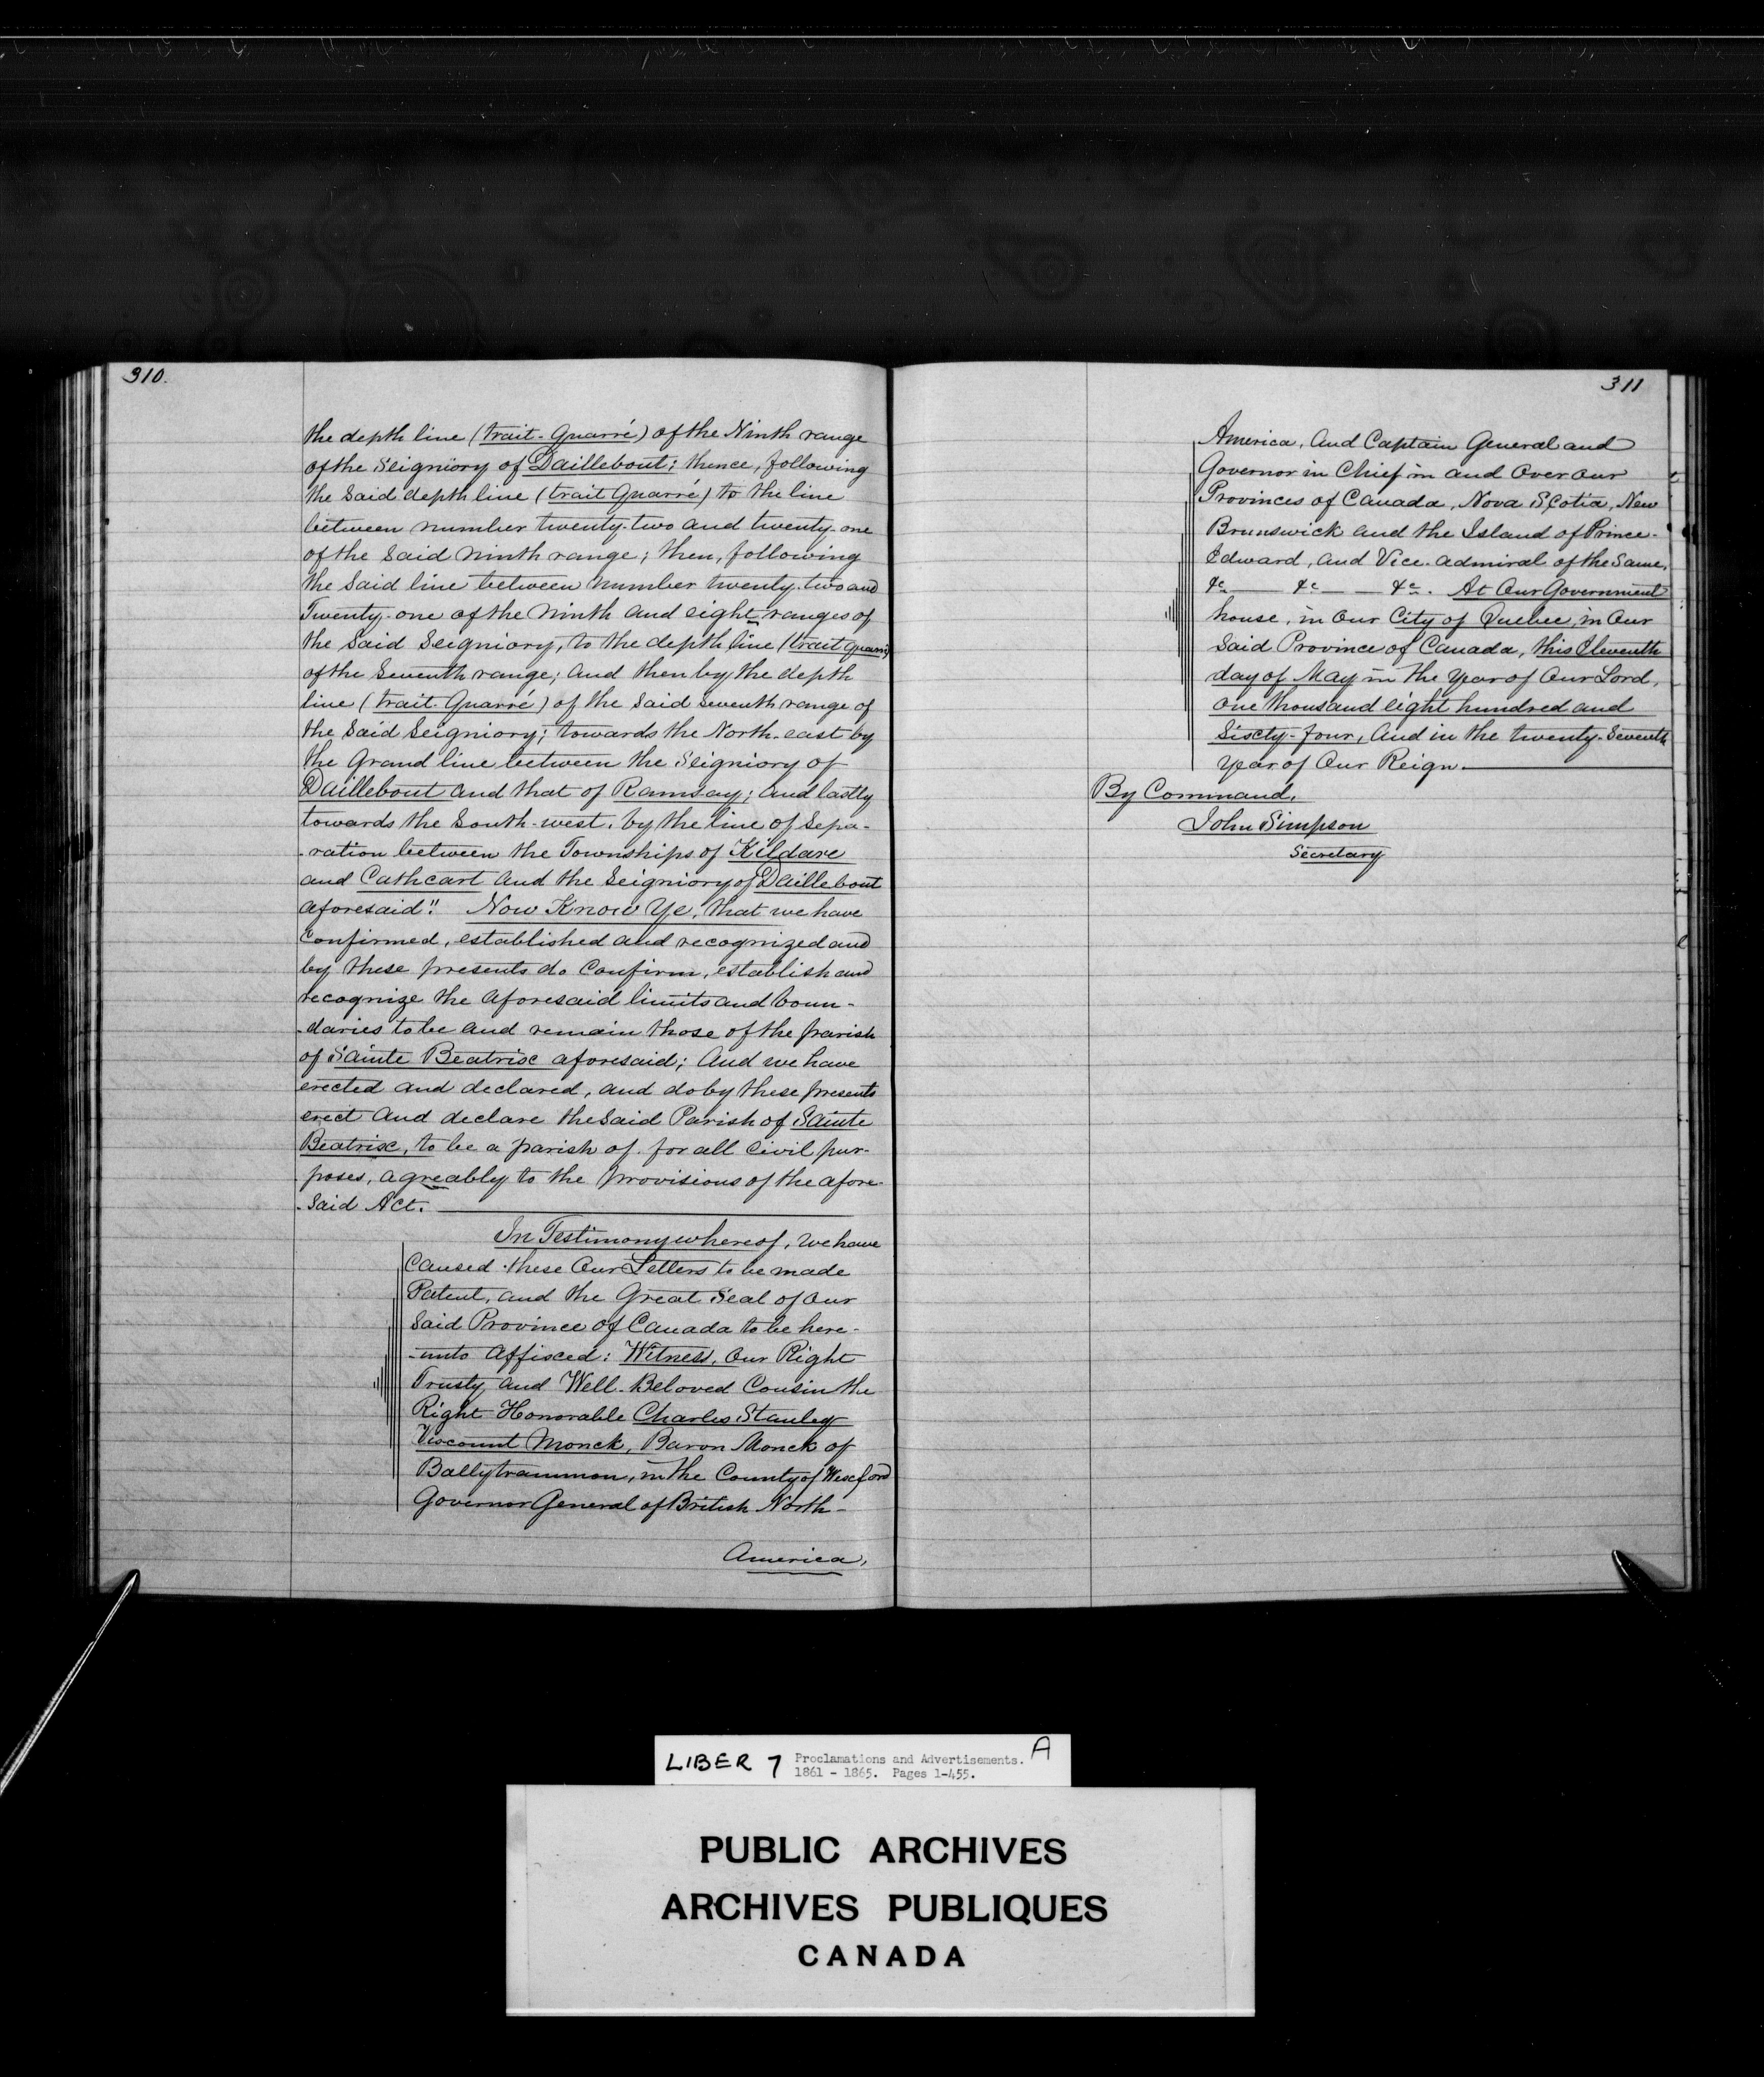 310.
the depth line (trait-Quarré) of the Ninth range
of the Seigniory of Daillebout; thence, following
the said depth line (trait Quarré) to the line
between number twenty-two and twenty-one
of the said ninth range; then, following
the said line between number twenty-two and
Twenty-one of the ninth and eight ranges of
the said Seigniory, to the depth line (trait quarré)
of the Seventh range; and then by the depth
line (trait-Quarré) of the said seventh range of
the said Seigniory; towards the North-east by
the Grand line between the Seigniory of
Daillebout and that of Ramsay; and lastly
towards the South-west, by the line of Sepa-
-ration between the Townships of Kildare
and Cathcart and the Seigniory of Daillebout
aforesaid". Now Know Ye, that we have
Confirmed, established and recognized and
by these presents do Confirm, establish and
recognize the aforesaid limits and boun-
-daries to be and remain those of the parish
of Sainte Beatrixe aforesaid; And we have
erected and declared, and do by these presents
erect and declare the said Parish of Sainte
Beatrixe, to be a parish of. for all civil pur-
poses, agreably to the provisions of the afore-
-said Act.
In Testimony whereof, we have
Caused these Our Letters to be made
Patent, and the Great Seal of Our
said Province of Canada to be here-
-unto affixed: Witness, Our Right
Trusty and Well-Beloved Cousin the
Right Honorable Charles Stanley
Viscount Monck, Baron Monck of
Ballytrammon, in the County of Wexford
Governor General of British North-
America,
311
America, and Captain General and
Governor in Chief in and Over our
Provinces of Canada, Nova Scotia, New
Brunswick and the Island of Prince-
Edward, and Vice-admiral of the Same,
&c &c &c. At Our Government
house, in Our City of Quebec, in Our
Said Province of Canada, this Eleventh
day of May in the Year of Our Lord,
one thousand eight hundred and
Sixty-four, and in the twenty-Seventh
year of Our Reign.
By Command,
John Simpson
Secretary
LIBER 7 Proclamations and Advertisements. A
1861 - 1865. Pages 1-455.
PUBLIC ARCHIVES
ARCHIVES PUBLIQUES
CANADA